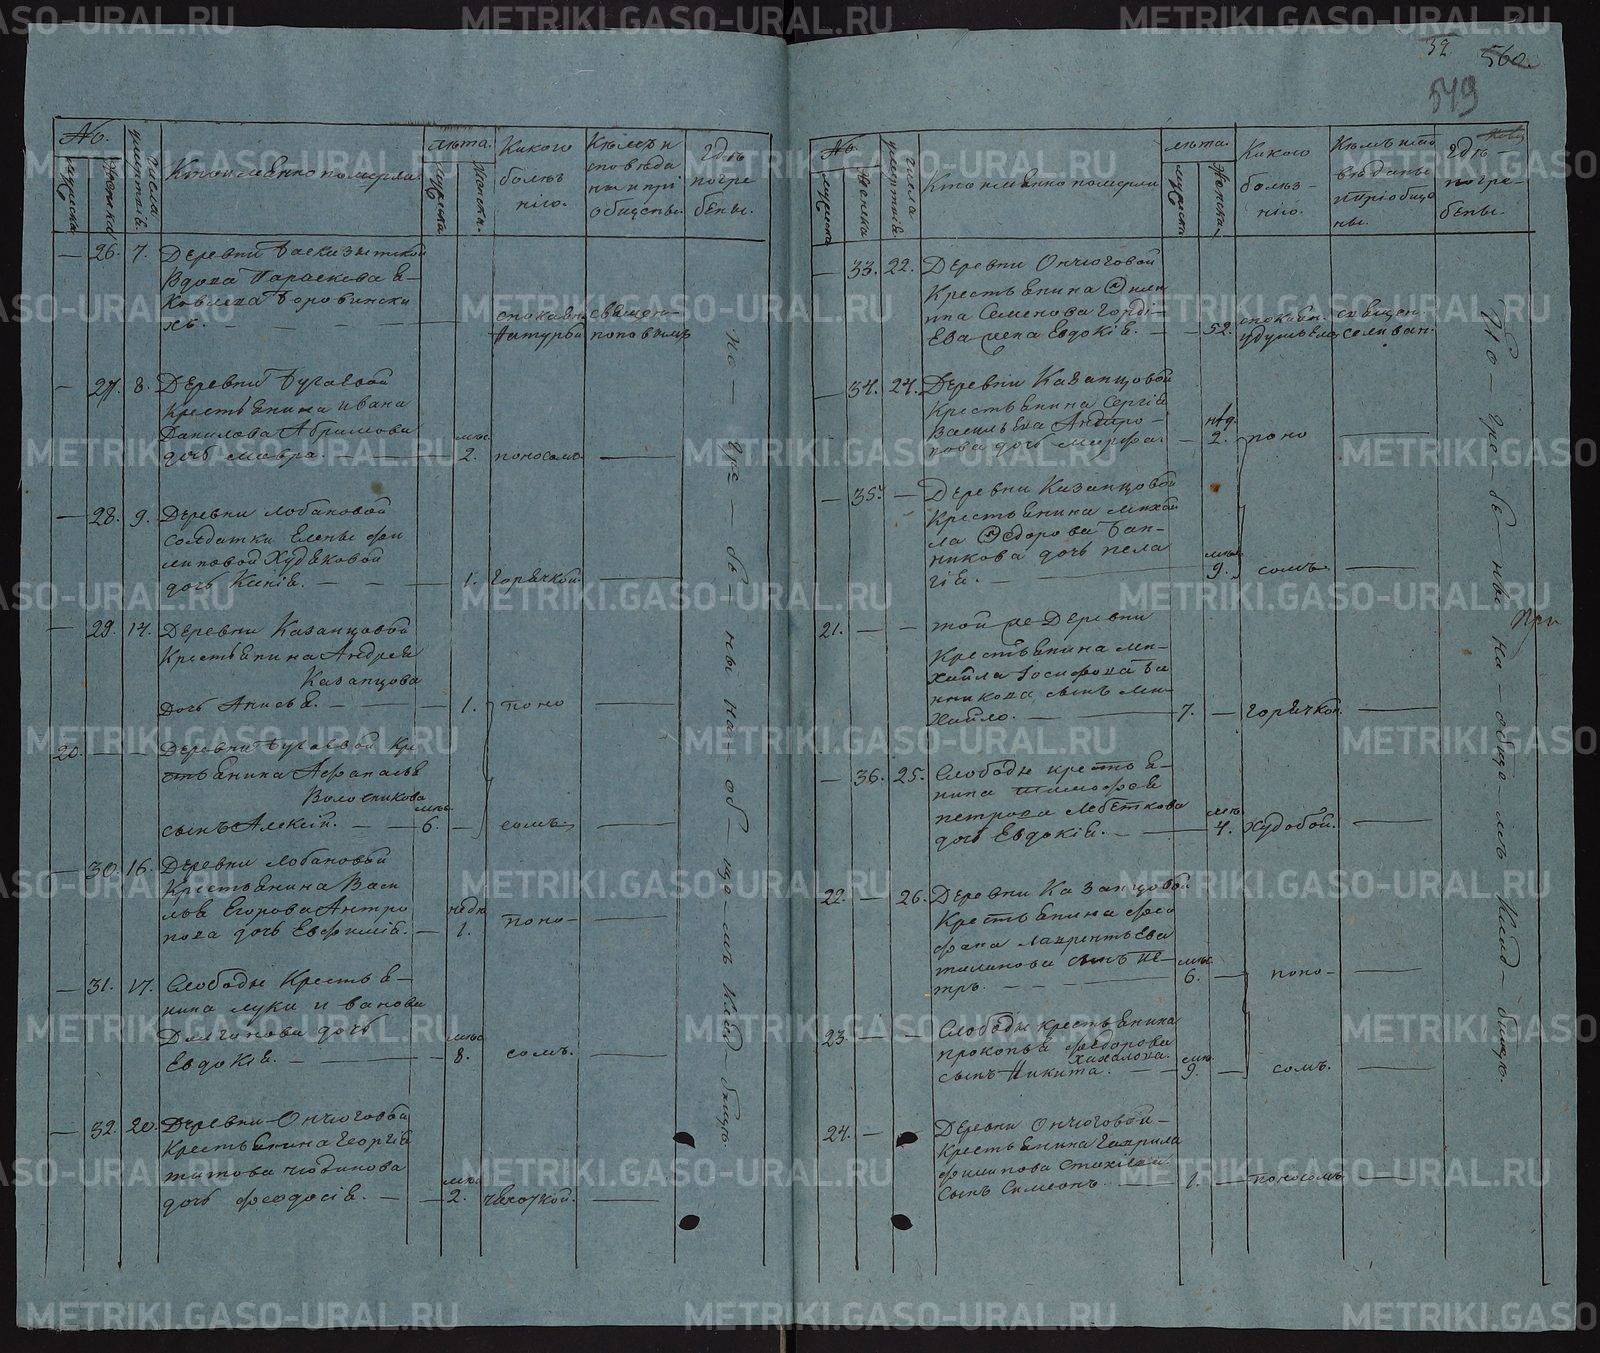 32 560.
519
№.
мужеска
Женска
Числа умертвiя.
Кто именно померли
лѣта.
мужеска
Женска.
Какою болѣзнiю.
Кѣмъ исповѣданы и прiобщены.
Гдѣ погребены.
— 26. 7. Деревни
Вдова Параскева Я-
ковлева Боровински
хъ. — — — —
священ-
Поповымъ
— 27. 8. Деревни Бугаевой
крестьянина Ивана
Данилова Абрамова
дочь Мавра. — мѣс. 2. поносомъ —
— 28. 9. Деревни Лобановой
солдатки Елены Фи
липовой Худяковой
дочь Ксенiя. — — 1. Горячкой. —
— 29. 14. Деревни Казанцовой
Крестьянина Андрея
Казанцова
Дочь Анисья. — — 1. поно —
20. — — Деревни Бугаевой кре
стьянина Афанасья
Волосникова
сынъ Алексѣй. — мѣс. 6. — сомъ. —
— 30. 16. Деревни Лобановой
Крестьянина Васи
лья Егорова Антро
пова дочь Евфимiя. — недѣ. 1. поно- —
— 31. 17. Слободы Крестья-
нина Луки Иванова
Долганова дочь
Евдокiя. — мѣс. 8. сомъ. —
— 32. 20. Деревни Ончюговой
Крестьянина Георгiя
Титова Чюдинова
дочь Феодосiя. — мѣс. 2. чахоткой. —
По — гре — бе — ны на — об — ще — мъ Клад — бищѣ.
№.
мужеска
Женска
Числа умертвiя
Кто именно померли
лѣта
мужеска
Женска.
Какою болѣз-нiю.
Кѣмъ исповѣданы и прiобщены.
Гдѣ — погре-бены.
— 33. 22. Деревни Ончюговой
Крестьянина Фили
ппа Семенова Гордѣ-
ева жена Евдокiя. — 52. священ.
Селиван.
— 34. 24. Деревни Казанцовой
Крестьянина Сергiя
Васильева Антро-
пова дочь Марфа. — нѣд. 2. поно —
— 35. — Деревни Казанцовой
Крестьянина Михай
ла Федорова Бан-
никова дочь Пела
гiя. — мѣс. 9. сомъ. —
21. — — той же Деревни
Крестьянина Ми-
хайла Iосифова Ба
нникова сынъ Ми-
хайло. — 7. — Горячкой. —
— 36. 25. Слободы крестья-
нина Тимофея
Петрова Лебеткова
дочь Евдокiя. — мѣс. 4. худобой. —
22. — 26. Деревни Казанцовой
Крестьянина Фео
фана Лаврентьева
сынъ Пе-
тръ. — — мѣс. 6. — поно- —
23. — — Слободы крестьянина
Прокопья Федорова
Хахалова.
сынъ Никита. — мѣс. 9. — сомъ. —
24. — — Деревни Ончюговой
Крестьянина Гаврила
Филипова
Сынъ Симеонъ — 1. — поносомъ —
По — гре — бе — ны на — обще — мъ Клад — бищѣ.
При